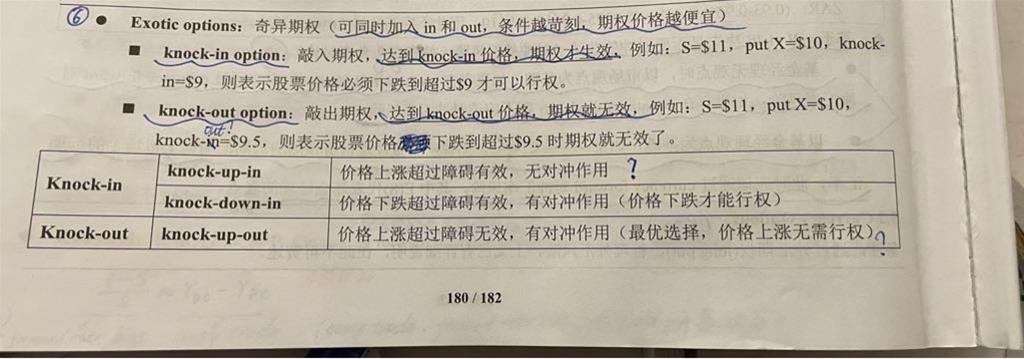 ⑥ ● Exotic options：奇异期权（可同时加入 in 和 out，条件越苛刻，期权价格越便宜）
■ knock-in option：敲入期权，达到 knock-in 价格，期权才生效，例如：S=$11，put X=$10，knock-
in=$9，则表示股票价格必须下跌到超过$9 才可以行权。
■ knock-out option：敲出期权，达到 knock-out 价格，期权就无效，例如：S=$11，put X=$10，
out!
knock-in=$9.5，则表示股票价格下跌到超过$9.5 时期权就无效了。
Knock-in knock-up-in 价格上涨超过障碍有效，无对冲作用 ?
knock-down-in 价格下跌超过障碍有效，有对冲作用（价格下跌才能行权）
Knock-out knock-up-out 价格上涨超过障碍无效，有对冲作用（最优选择，价格上涨无需行权）?
180 / 182